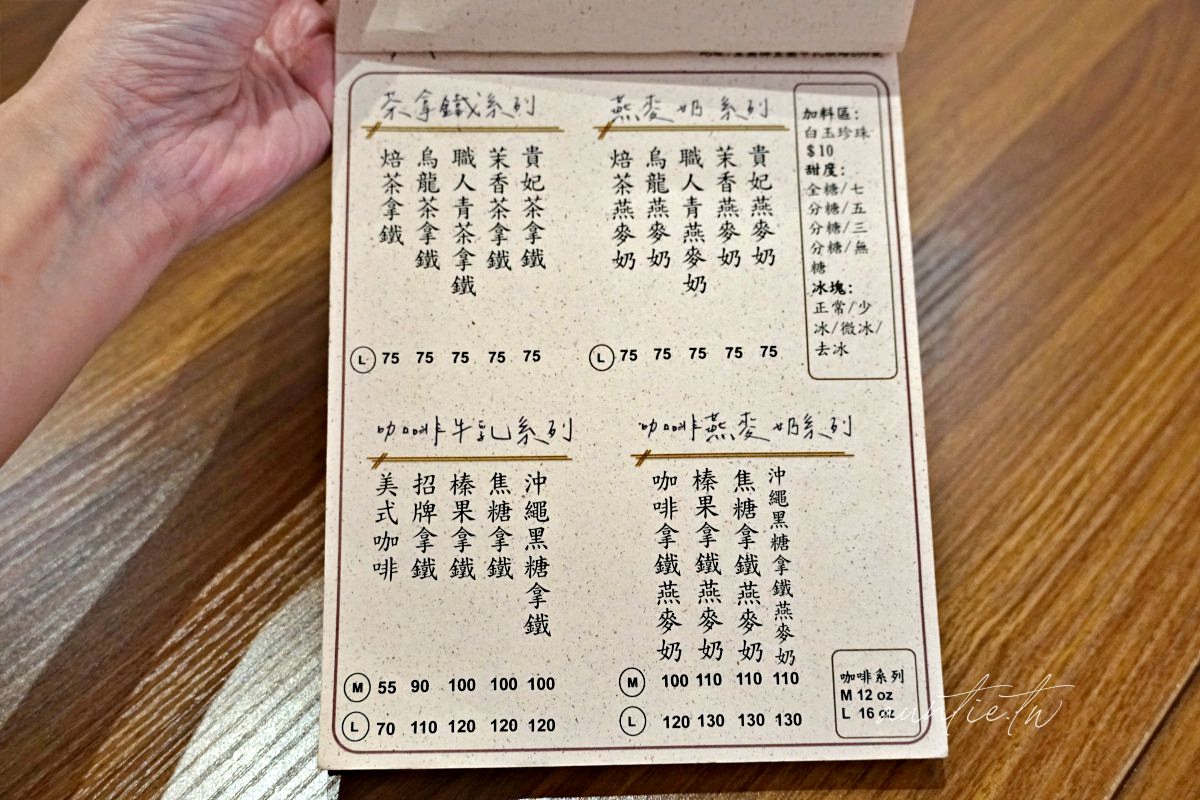 茶拿鐵系列
焙茶拿鐵
烏龍茶拿鐵
職人青茶拿鐵
茉香茶拿鐵
貴妃茶拿鐵
L 75 75 75 75 75
燕麥奶系列
焙茶燕麥奶
烏龍燕麥奶
職人青燕麥奶
茉香燕麥奶
貴妃燕麥奶
L 75 75 75 75 75
加料區:
白玉珍珠
$10
甜度:
全糖/七
分糖/五
分糖/三
分糖/無
糖
冰塊:
正常/少
冰/微冰/
去冰
咖啡牛乳系列
美式咖啡
招牌拿鐵
榛果拿鐵
焦糖拿鐵
沖繩黑糖拿鐵
M 55 90 100 100 100
L 70 110 120 120 120
咖啡燕麥奶系列
咖啡拿鐵燕麥奶
榛果拿鐵燕麥奶
焦糖拿鐵燕麥奶
沖繩黑糖拿鐵燕麥奶
M 100 110 110 110
L 120 130 130 130
咖啡系列
M 12 oz
L 16 oz
auntie.tw